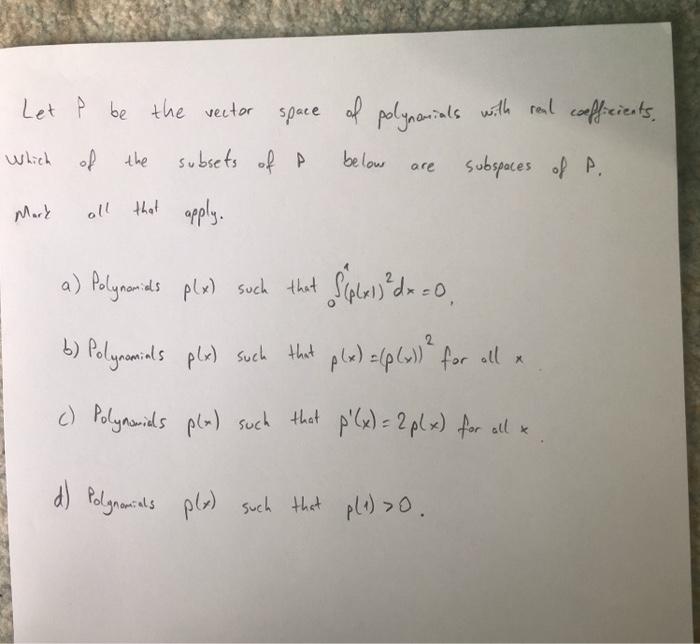 Let P be the vector space of polynomials with real coefficients.
Which of the subsets of P below are subspaces of P.
Mark all that apply.
a) Polynomials p(x) such that ∫₀¹(p(x))²dx = 0,
b) Polynomials p(x) such that p(x) = (p(x))² for all x
c) Polynomials p(x) such that p'(x) = 2p(x) for all x.
d) Polynomials p(x) such that p(1) > 0.